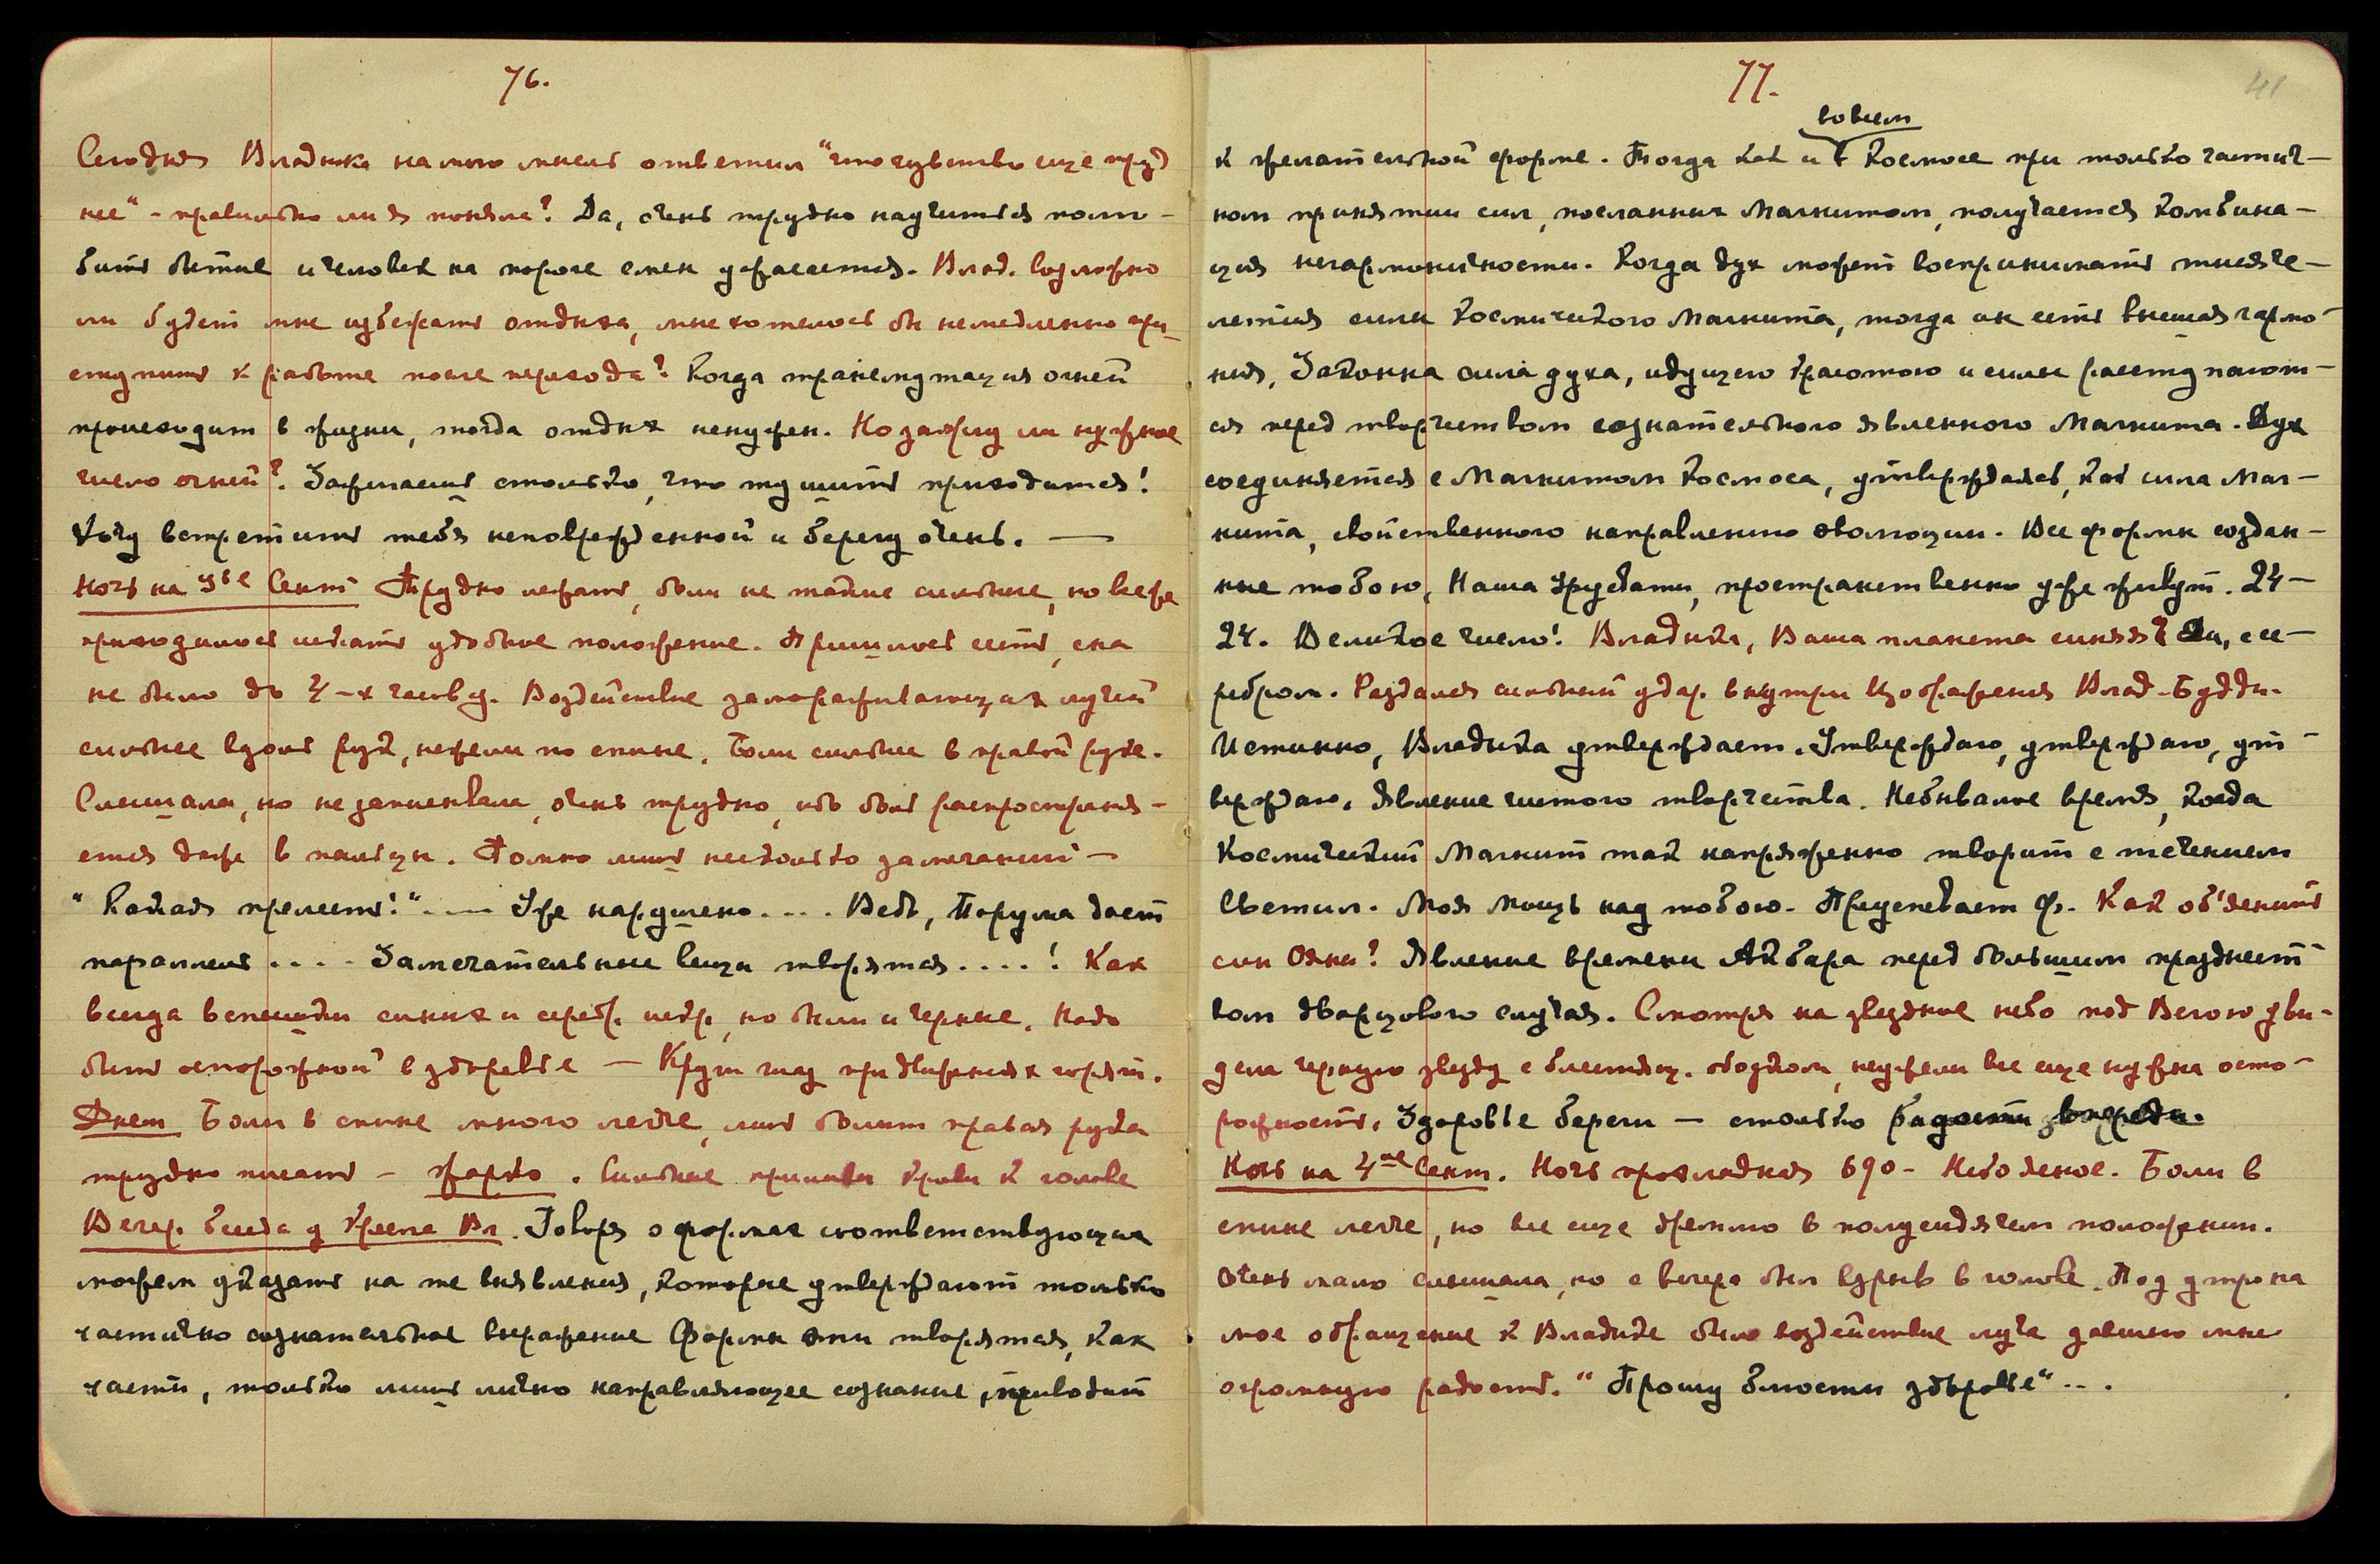 76.
Сегодня Владыка на мою мысль ответил "что чувство еще труд
нее" - правильно ли я поняла? Да, очень трудно научиться полю-
бить бытие и человек на пороге смены ужасается. Влад. возможно
ли будет мне избежать отдыха, мне хотелось бы немедленно при
ступить к работе после перехода? Когда трансмутация огней
происходит в жизни, тогда отдых ненужен. Но зажгу ли нужное
число огней? Зажигаешь столько, что тушить приходится!
Хочу встретить тебя неповрежденной и берегу очень. —
Ночь на 3ье Сент Трудно лежать, боли не такие сильные, но все же
приходилось искать удобное положение. Пришлось сесть, сна
не было до 4-х часов у. Воздействие замораживающих лучей
сильнее вдоль рук, нежели по спине. Боли сильнее в правой руке.
Слышала, но не записывала, очень трудно, ибо боль распространя-
ется даже в пальцы. Помню лишь несколько замечаний —
"Какая прелесть!" .— Уже нарушено.... Ведь, Порума дает
параллель .... Замечательные вещи творятся....! Как
всегда вспышки синих и серебр. искр, но были и черные. Надо
быть осторожной в здоровье — Круги глаз при движениях горят.
Днем Боли в спине много легче, лишь болит правая рука
трудно писать - жарко. Сильные приливы крови к голове
Вечер. Беседа у Кресла Вл. Говоря о формах соответствующих
можем указать на те выявления, которые утверждают только
частично сознательное выражение Формы эти творятся, как
части, только лишь лично направляющее сознание, приводит
77.
41
вовсем
к желательной форме. Тогда как и в Космосе при только частич-
ном принятии сил, посланных Магнитом, получается комбина-
ция негармоничности. Когда дух может воспринимать тысяче-
летия силы Космического Магнита, тогда он есть высшая гармо-
ния, Законна сила духа, идущего красотою и силы расступают-
ся перед творчеством сознательного явленного Магнита. Дух
соединяется с Магнитом Космоса, утверждаясь, как сила Маг-
нита, свойственного направлению эволюции. Все формы создан-
ные тобою, Наша Урусвати, пространственно уже живут. 24-
24. Великое число! Владыка, Ваша планета синяя? Да, се-
ребром. Раздался сильный удар внутри Изображения Влад. Будды.
Истинно, Владыка утверждает. Утверждаю, утверждаю, ут-
верждаю, явление чистого творчества. Небывалое время, когда
Космический Магнит так напряженно творит с течением
Светил. Моя Мощь над тобою. Преуспевает Ф. Как об'яснить
сон Ояны? Явление времени Акбара перед большим празднест
вом дворцового случая. Смотря на звездное небо под Вегою уви-
дела черную звезду с блестящ. ободком, неужели все еще нужна осто-
рожность. Здоровье береги — столько радости впереди.
Ночь на 4ое Сент. Ночь прохладная 690- Небо ясное. Боли в
спине легче, но все еще дремлю в полусидячем положении.
Очень мало слышала, но с вечера был взрыв в голове. Под утро на
мое обращение к Владыке было воздействие луча давшего мне
огромную радость. "Прошу блюсти здоровье"...